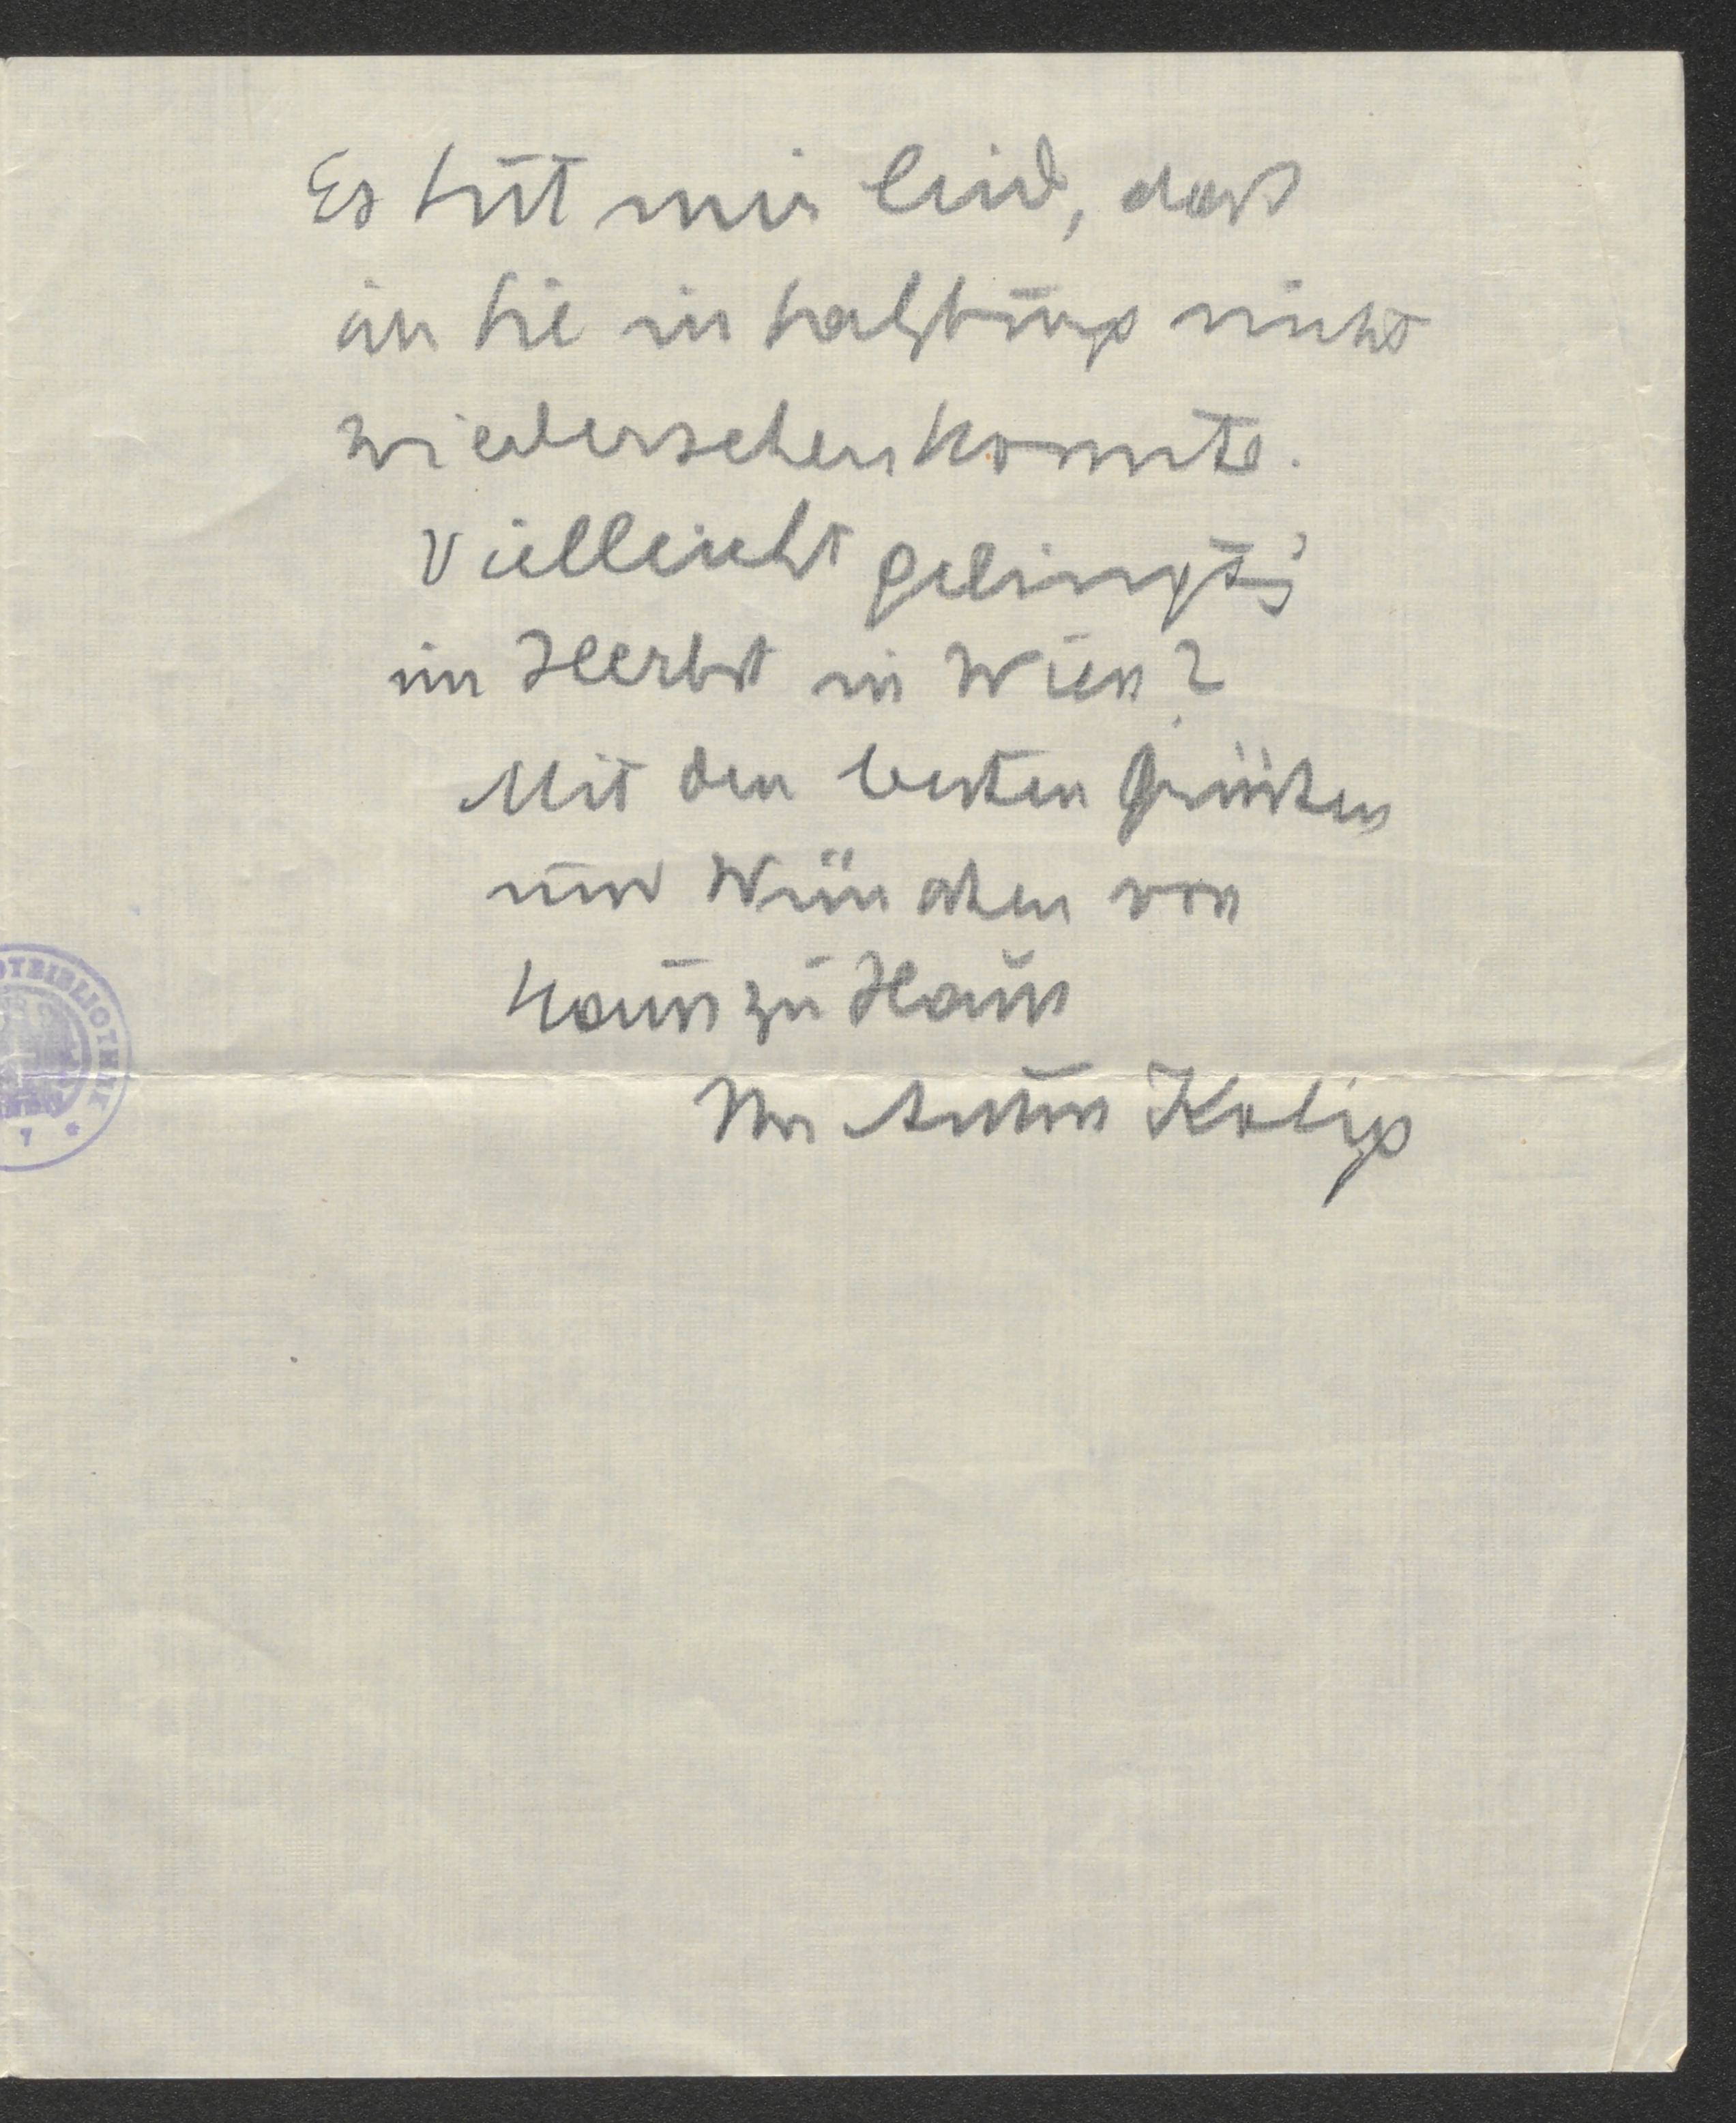 Es tut mir leid, dass
ich Sie in Salzburg nicht
wiedersehen konnte.
Vielleicht gelingt's
im Herbst in Wien?
Mit den besten Grüssen
und Wünschen von
Haus zu Haus
Ihr Anton Kolig
7 *